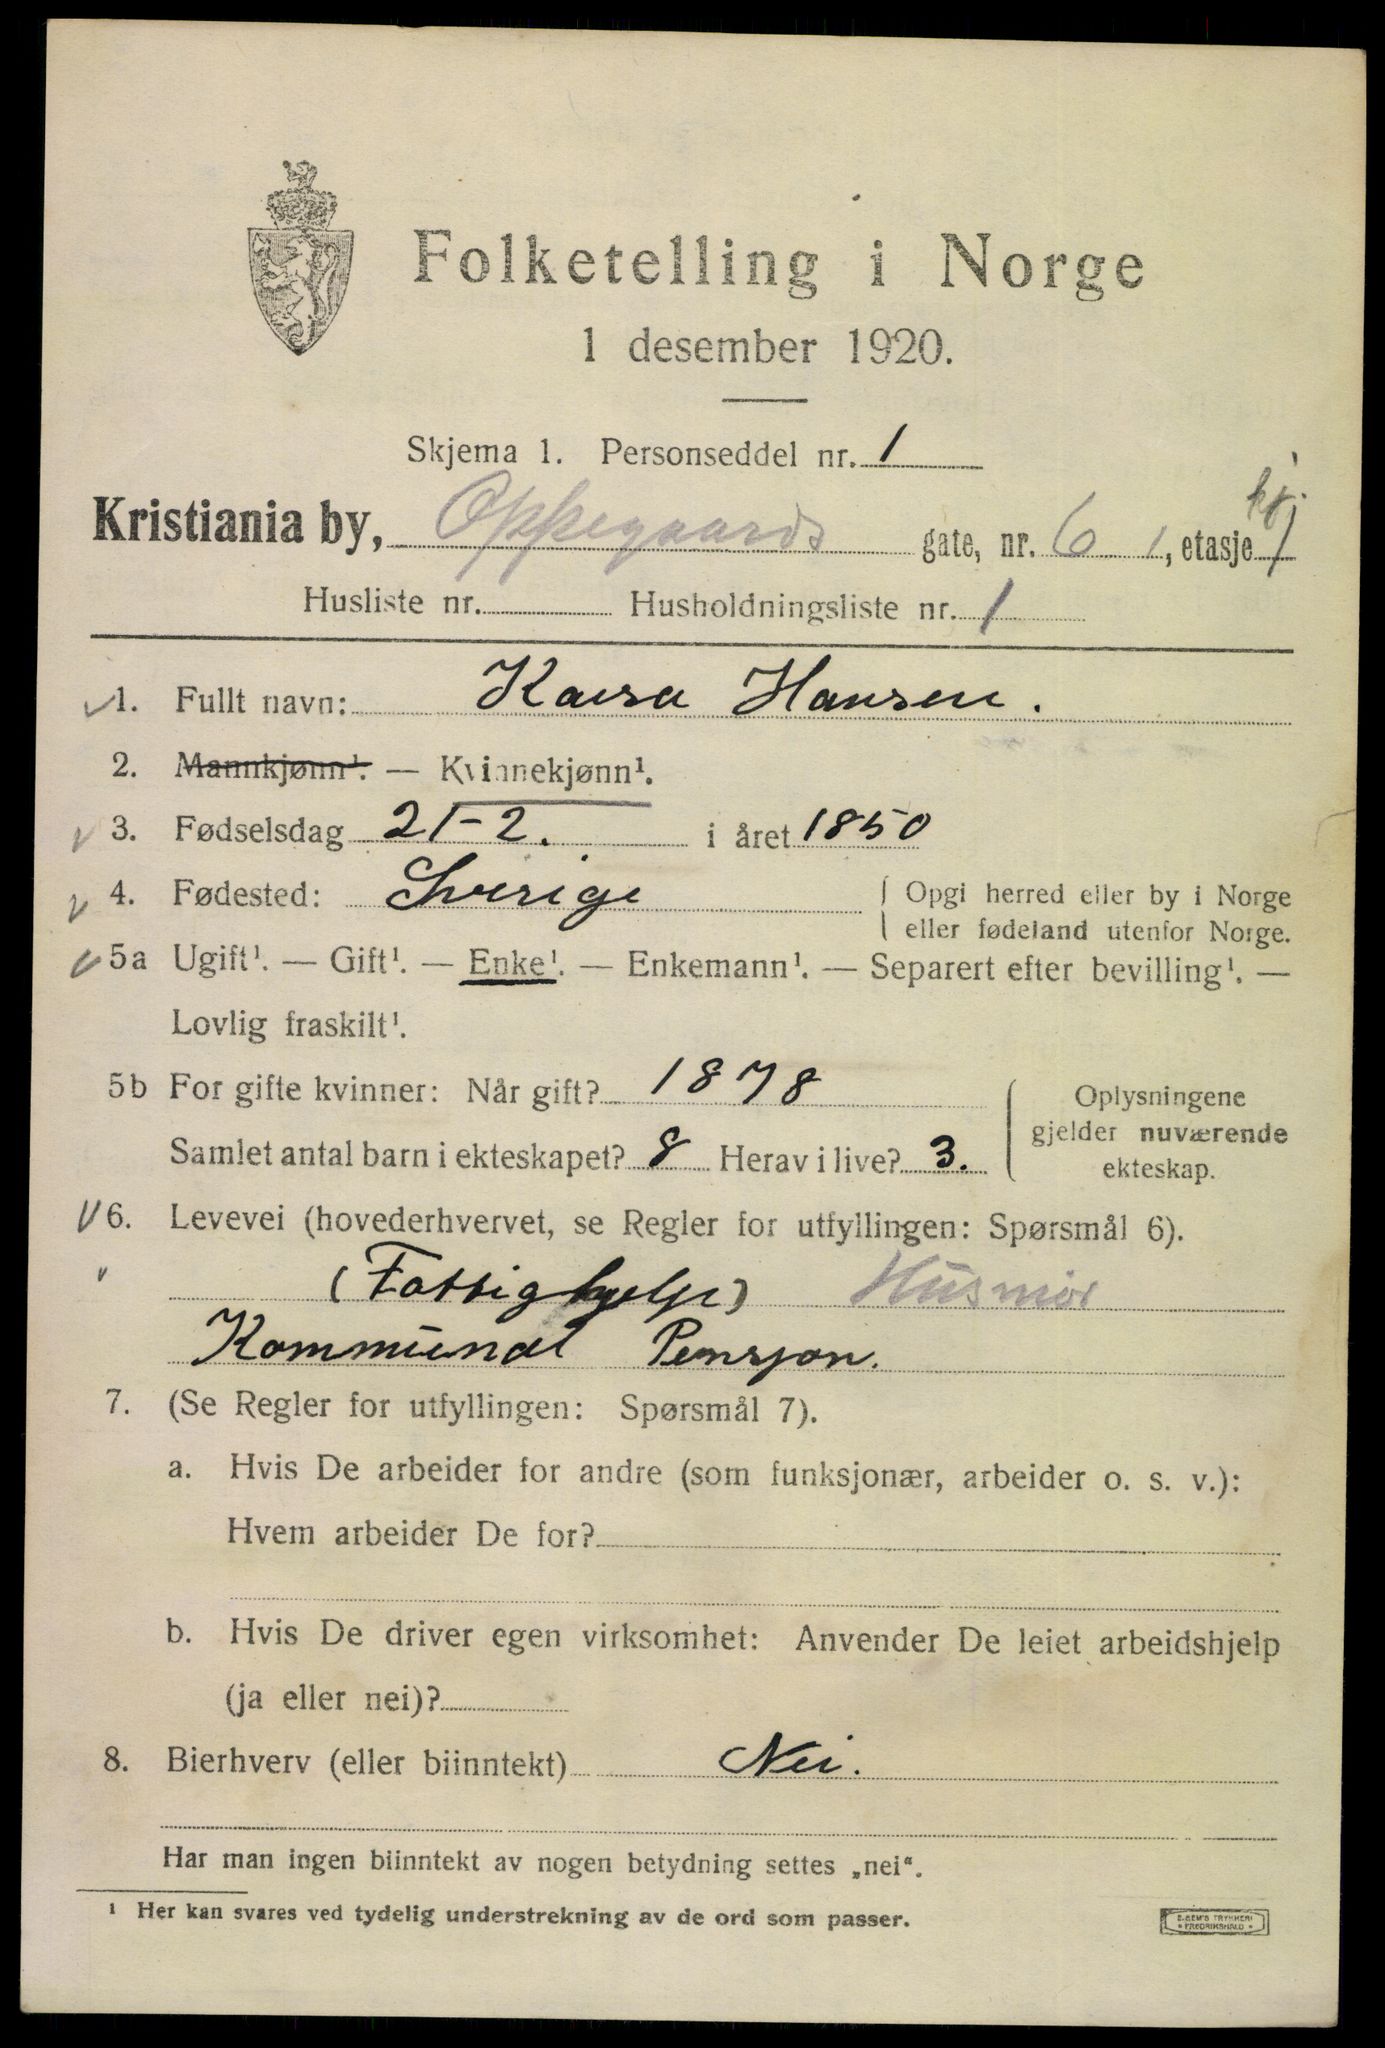 Folketelling i Norge
1 desember 1920.
Skjema 1. Personseddel nr. 1
Kristiania by, Oppegaards gate, nr. 6 1, etasje
Husliste nr. Husholdningsliste nr. 1
1. Fullt navn: Kaisa Hansen.
2. Mannkjønn¹. — Kvinnekjønn¹.
3. Fødselsdag 21-2. i året 1850
4. Fødested: Sverige { Opgi herred eller by i Norge
eller fødeland utenfor Norge.
5a Ugift¹. — Gift¹. — Enke¹. — Enkemann¹. — Separert efter bevilling¹. —
Lovlig fraskilt¹.
5b For gifte kvinner: Når gift? 1878
Samlet antal barn i ekteskapet? 8 Herav i live? 3.
Oplysningene
gjelder nuværende
ekteskap.
6. Levevei (hovederhvervet, se Regler for utfyllingen: Spørsmål 6).
(Fattighjelp) Husmor
Kommunal Pensjon.
7. (Se Regler for utfyllingen: Spørsmål 7).
a. Hvis De arbeider for andre (som funksjonær, arbeider o. s. v.):
Hvem arbeider De for?
b. Hvis De driver egen virksomhet: Anvender De leiet arbeidshjelp
(ja eller nei)?
8. Bierhverv (eller biinntekt) Nei.
Har man ingen biinntekt av nogen betydning settes „nei“.
¹ Her kan svares ved tydelig understrekning av de ord som passer.
E. SEM'S TRYKKERI
* FREDRIKSHALD *